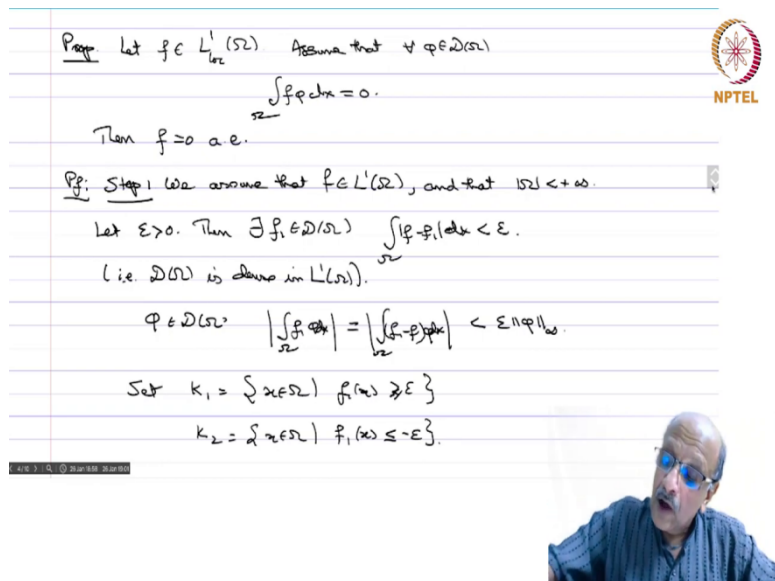 Prop. Let f ∈ L¹_loc(Ω). Assume that ∀ φ∈D(Ω)
∫_Ω fφdx = 0.
NPTEL
Then f=0 a.e.
Pf: Step 1 We assume that f∈L¹(Ω), and that |Ω| < +∞.
Let ε>0. Then ∃ f₁∈D(Ω) ∫_Ω |f-f₁|dx < ε.
(i.e. D(Ω) is dense in L¹(Ω)).
φ∈D(Ω) |∫_Ω f₁ φdx| = |∫_Ω (f₁-f)φdx| < ε‖φ‖_∞.
Set K₁ = {x∈Ω | f₁(x) ≥ ε}
K₂ = {x∈Ω | f₁(x) ≤ -ε}.
4/10